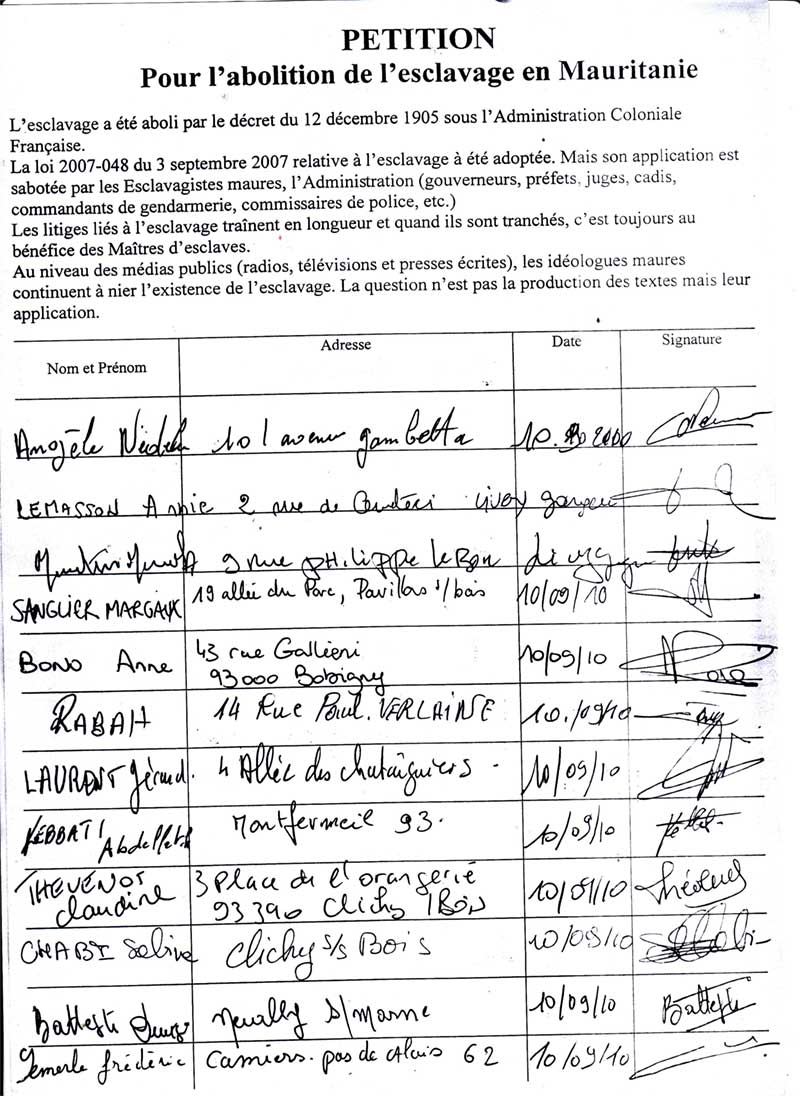 PETITION
Pour l'abolition de l'esclavage en Mauritanie
L'esclavage a été aboli par le décret du 12 décembre 1905 sous l'Administration Coloniale
Française.
La loi 2007-048 du 3 septembre 2007 relative à l'esclavage à été adoptée. Mais son application est
sabotée par les Esclavagistes maures, l'Administration (gouverneurs, préfets, juges, cadis,
commandants de gendarmerie, commissaires de police, etc.)
Les litiges liés à l'esclavage traînent en longueur et quand ils sont tranchés, c'est toujours au
bénéfice des Maîtres d'esclaves.
Au niveau des médias publics (radios, télévisions et presses écrites), les idéologues maures
continuent à nier l'existence de l'esclavage. La question n'est pas la production des textes mais leur
application.
Nom et Prénom Adresse Date Signature
Angèle 101 avenue gambetta
LEMASSON Annie 2 rue de
9 rue PHILIPPE leBon
SANGLIER MARGAUX 19 allée du Parc, Pavillons s/bois 10/09/10
BONO Anne 43 rue Gallieni 10/09/10
93000 Bobigny
RABAH 14 Rue Paul. VERLAINE 10/09/10
LAURENT Gérard. 4 Allée des chataigniers - 10/09/10
KEBBATI Montfermeil 93. 10/09/10
THEVENOT 3 Place de l'orangerie 10/09/10
Claudine 93390 Clichy /Bois
CHABI Sabine Clichy s/s Bois 10/09/10
Battesti Neuilly s/Marne 10/09/10 Battesti
frédéric Camiers. pas de Calais 62 10/09/10